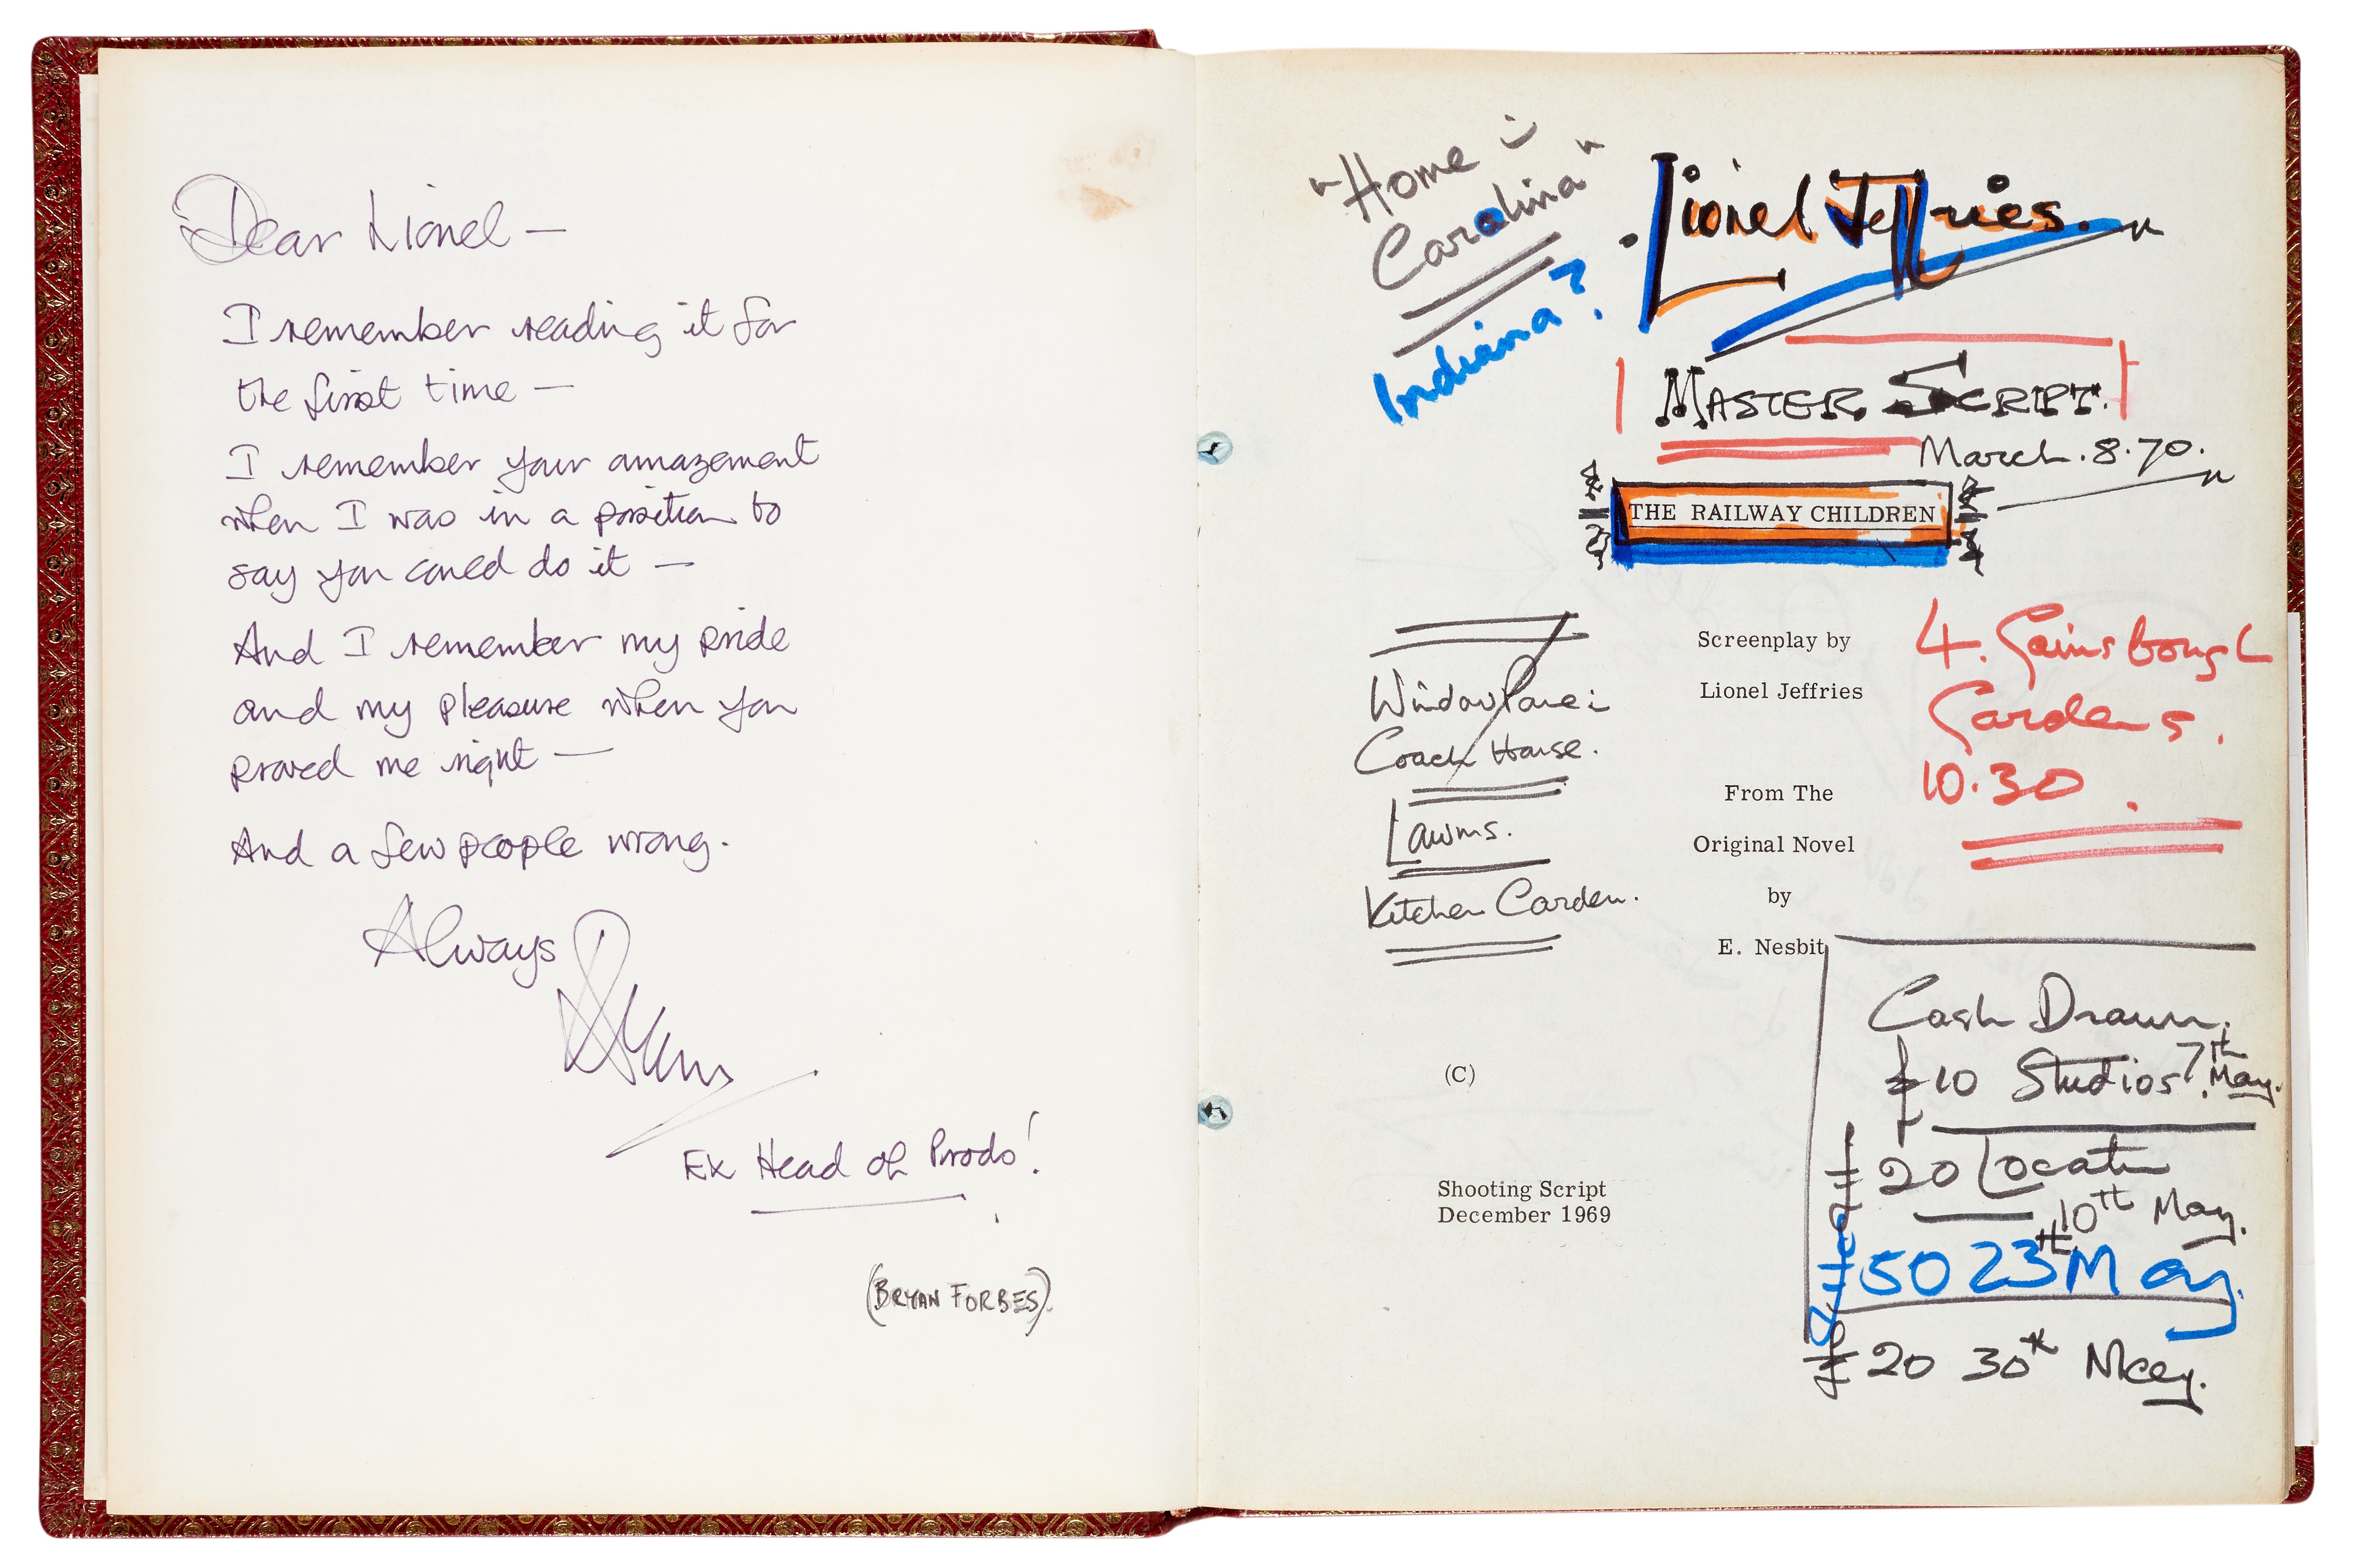 Dear Lionel —
I remember reading it for
the first time —
I remember your amazement
when I was in a position to
say you could do it —
And I remember my pride
and my pleasure when you
proved me right —
And a few people wrong.
Always
Bryan
Ex Head of Prods!
(BRYAN FORBES)
"Home in
Carolina"
Indiana?
Lionel Jeffries.
MASTER SCRIPT.
March.8.70.
THE RAILWAY CHILDREN
Screenplay by
Lionel Jeffries
From The
Original Novel
by
E. Nesbit
(C)
Shooting Script
December 1969
Window Pane:
Coach House.
Lawns.
Kitchen Garden.
4. Gainsborough
Gardens.
10.30
Cash Drawn.
£10 Studios 7th May.
£20 Location
10th May.
£50 23th May.
£20 30th May.